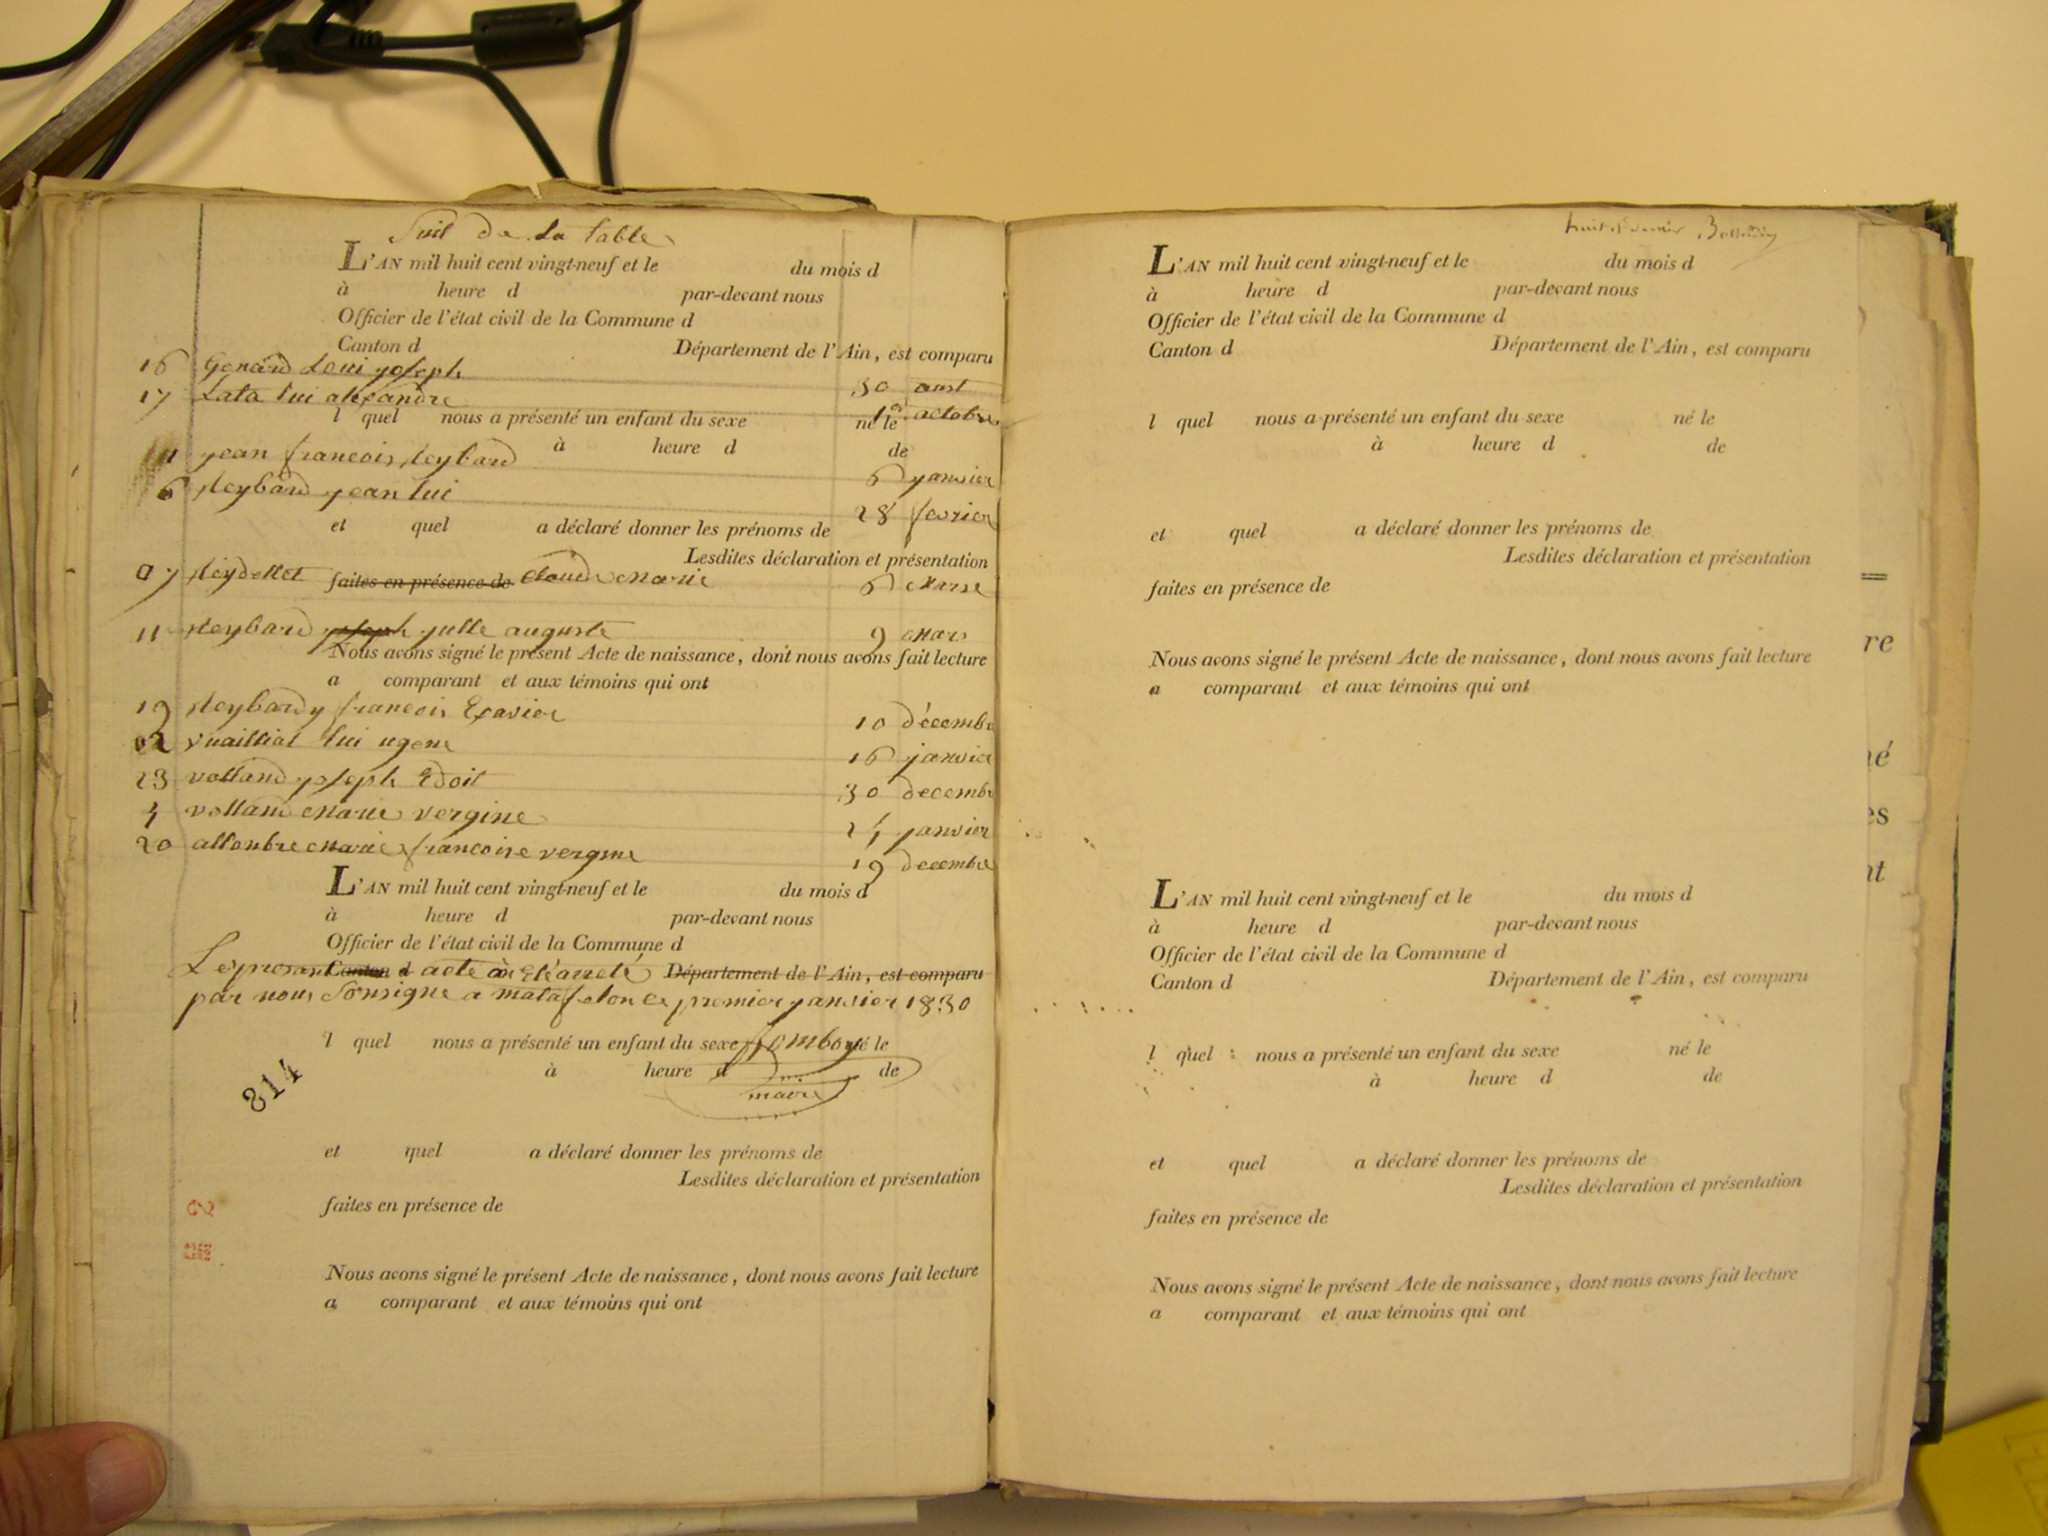 Suit de La Table
L'AN mil huit cent vingt-neuf et le du mois d
à heure d par-devant nous
Officier de l'état civil de la Commune d
Canton d Département de l'Ain, est comparu
16 Genard Loui yoseph 30 aout
17 Lata lui alexandre 1er octobre
l quel nous a présenté un enfant du sexe né le
à heure d de
yean francois Reybard 6 yanvier
6 Reybard yean lui 28 fevrier
et quel a déclaré donner les prénoms de
Lesdites déclaration et présentation
7 Reydellet faites en présence de Claude Marie 6 Marse
11 Reybard yoseph yulle auguste 9 Mars
Nous avons signé le présent Acte de naissance, dont nous avons fait lecture
a comparant et aux témoins qui ont
19 Reybard y francois Exavier 10 décembre
2 vuailliat lui ugene 16 janvier
23 volland yoseph Edoit 30 decembre
4 volland Marie vergine 24 yanvier
20 allonbre Marie francoise vergine 19 decembre
L'AN mil huit cent vingt-neuf et le du mois d
à heure d par-devant nous
Officier de l'état civil de la Commune d
Le present Canton d acte a Eté arreté Département de l'Ain, est comparu
par nous Sousigne a matafelon ce premier yanvier 1830
l quel nous a présenté un enfant du sexe né le
à heure d de
maire
814
et quel a déclaré donner les prénoms de
Lesdites déclaration et présentation
faites en présence de
Nous avons signé le présent Acte de naissance, dont nous avons fait lecture
a comparant et aux témoins qui ont
L'AN mil huit cent vingt-neuf et le du mois d
à heure d par-devant nous
Officier de l'état civil de la Commune d
Canton d Département de l'Ain, est comparu
l quel nous a présenté un enfant du sexe né le
à heure d de
et quel a déclaré donner les prénoms de
Lesdites déclaration et présentation
faites en présence de
Nous avons signé le présent Acte de naissance, dont nous avons fait lecture
a comparant et aux témoins qui ont
L'AN mil huit cent vingt-neuf et le du mois d
à heure d par-devant nous
Officier de l'état civil de la Commune d
Canton d Département de l'Ain, est comparu
l quel nous a présenté un enfant du sexe né le
à heure d de
et quel a déclaré donner les prénoms de
Lesdites déclaration et présentation
faites en présence de
Nous avons signé le présent Acte de naissance, dont nous avons fait lecture
a comparant et aux témoins qui ont
re
né
es
nt